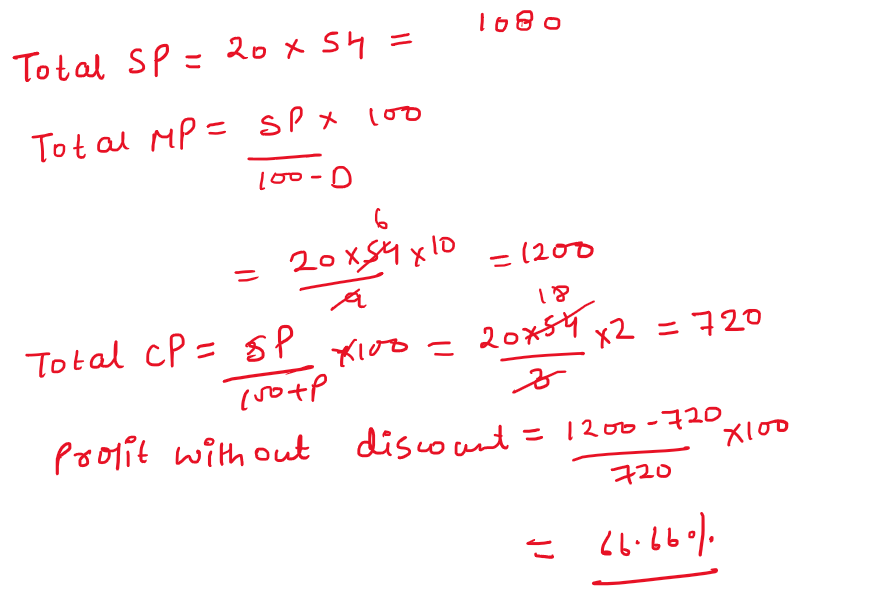 Total SP = 20 x 54 = 1080
Total MP = SP x 100 / 100 - D
= 20 x 54 6 x 10 / 9 = 1200
Total CP = SP / 100 + P x 100 = 20 x 54 18 / 3 x 2 = 720
Profit without discount = 1200 - 720 / 720 x 100
= 66.66%